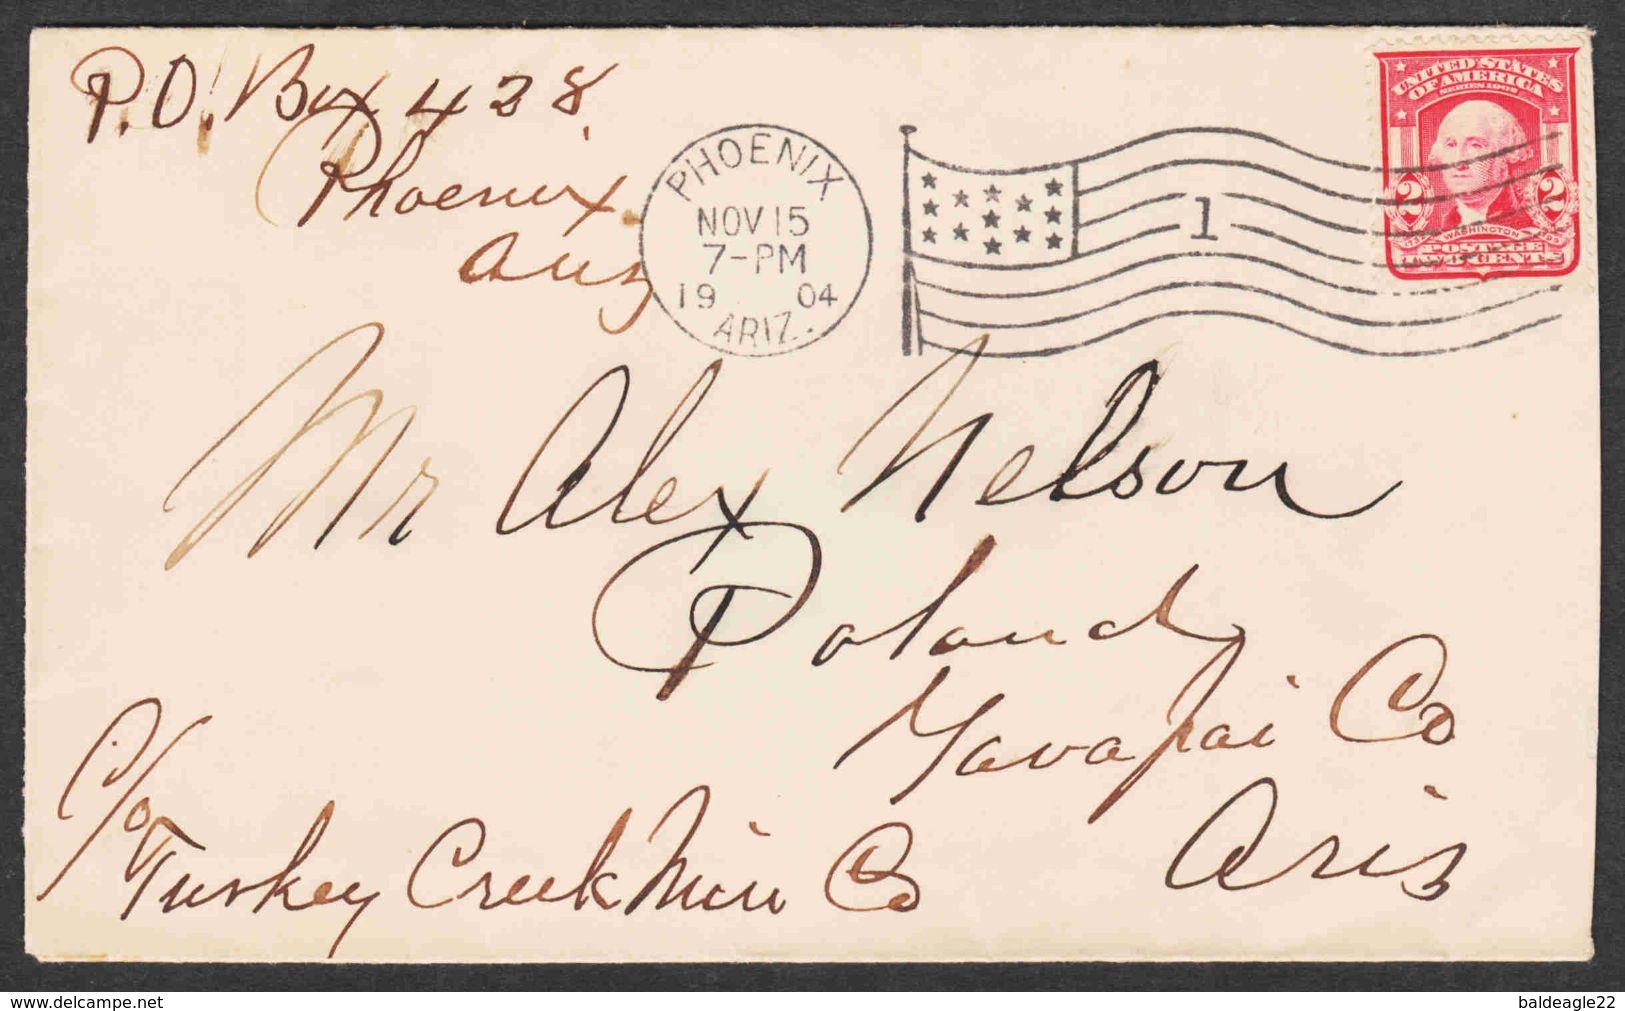 P.O. Box 428.
Phoenix
Ariz
PHOENIX
NOV 15
7-PM
19 04
ARIZ.
1
UNITED STATES
OF AMERICA
SERIES 1902
2 2
1732 WASHINGTON 1799
POSTAGE
TWO CENTS
Mr Alex Nelson
Poland
Yavapai Co
Aris
C/o
Turkey Creek Min Co
delcampe.net
baldeagle22